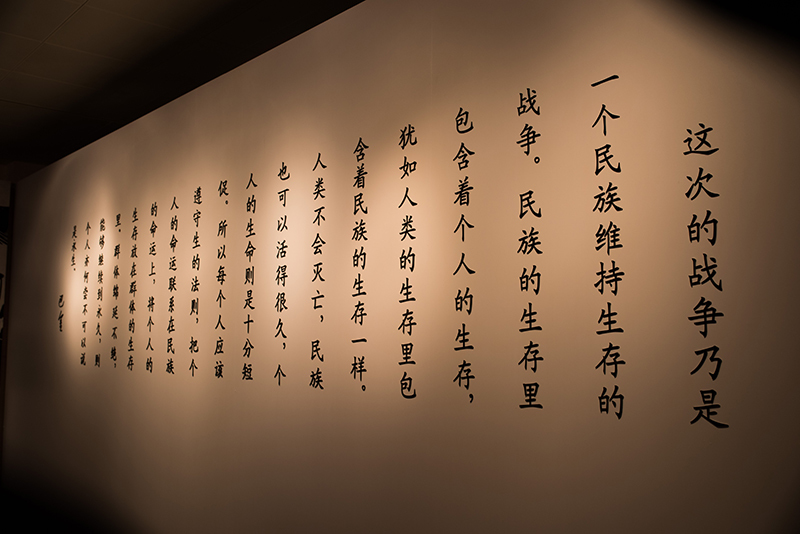 这次的战争乃是
一个民族维持生存的
战争。民族的生存里
包含着个人的生存，
犹如人类的生存里包
含着民族的生存一样。
人类不会灭亡，民族
也可以活得很久，个
人的生命则是十分短
促。所以每个人应该
遵守生的法则，把个
人的命运联系在民族
的命运上，将个人的
生存放在群体的生存
里。群体绵延不绝，
能够继续到永久，则
个人亦何尝不可以说
是永生。
巴金